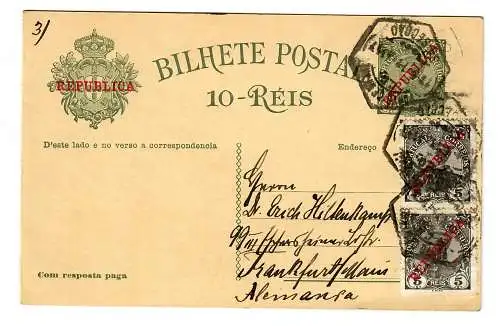 3)
BILHETE POSTAL
REPUBLICA
10-RÉIS
REPUBLICA
D'este lado e no verso a correspondencia
Endereço
Herrn
Dr. Erich Hiltenkamp
99 III
Frankfurt Main
Alemanha
Com resposta paga
REPUBLICA
5
REPUBLICA
5 REIS 5